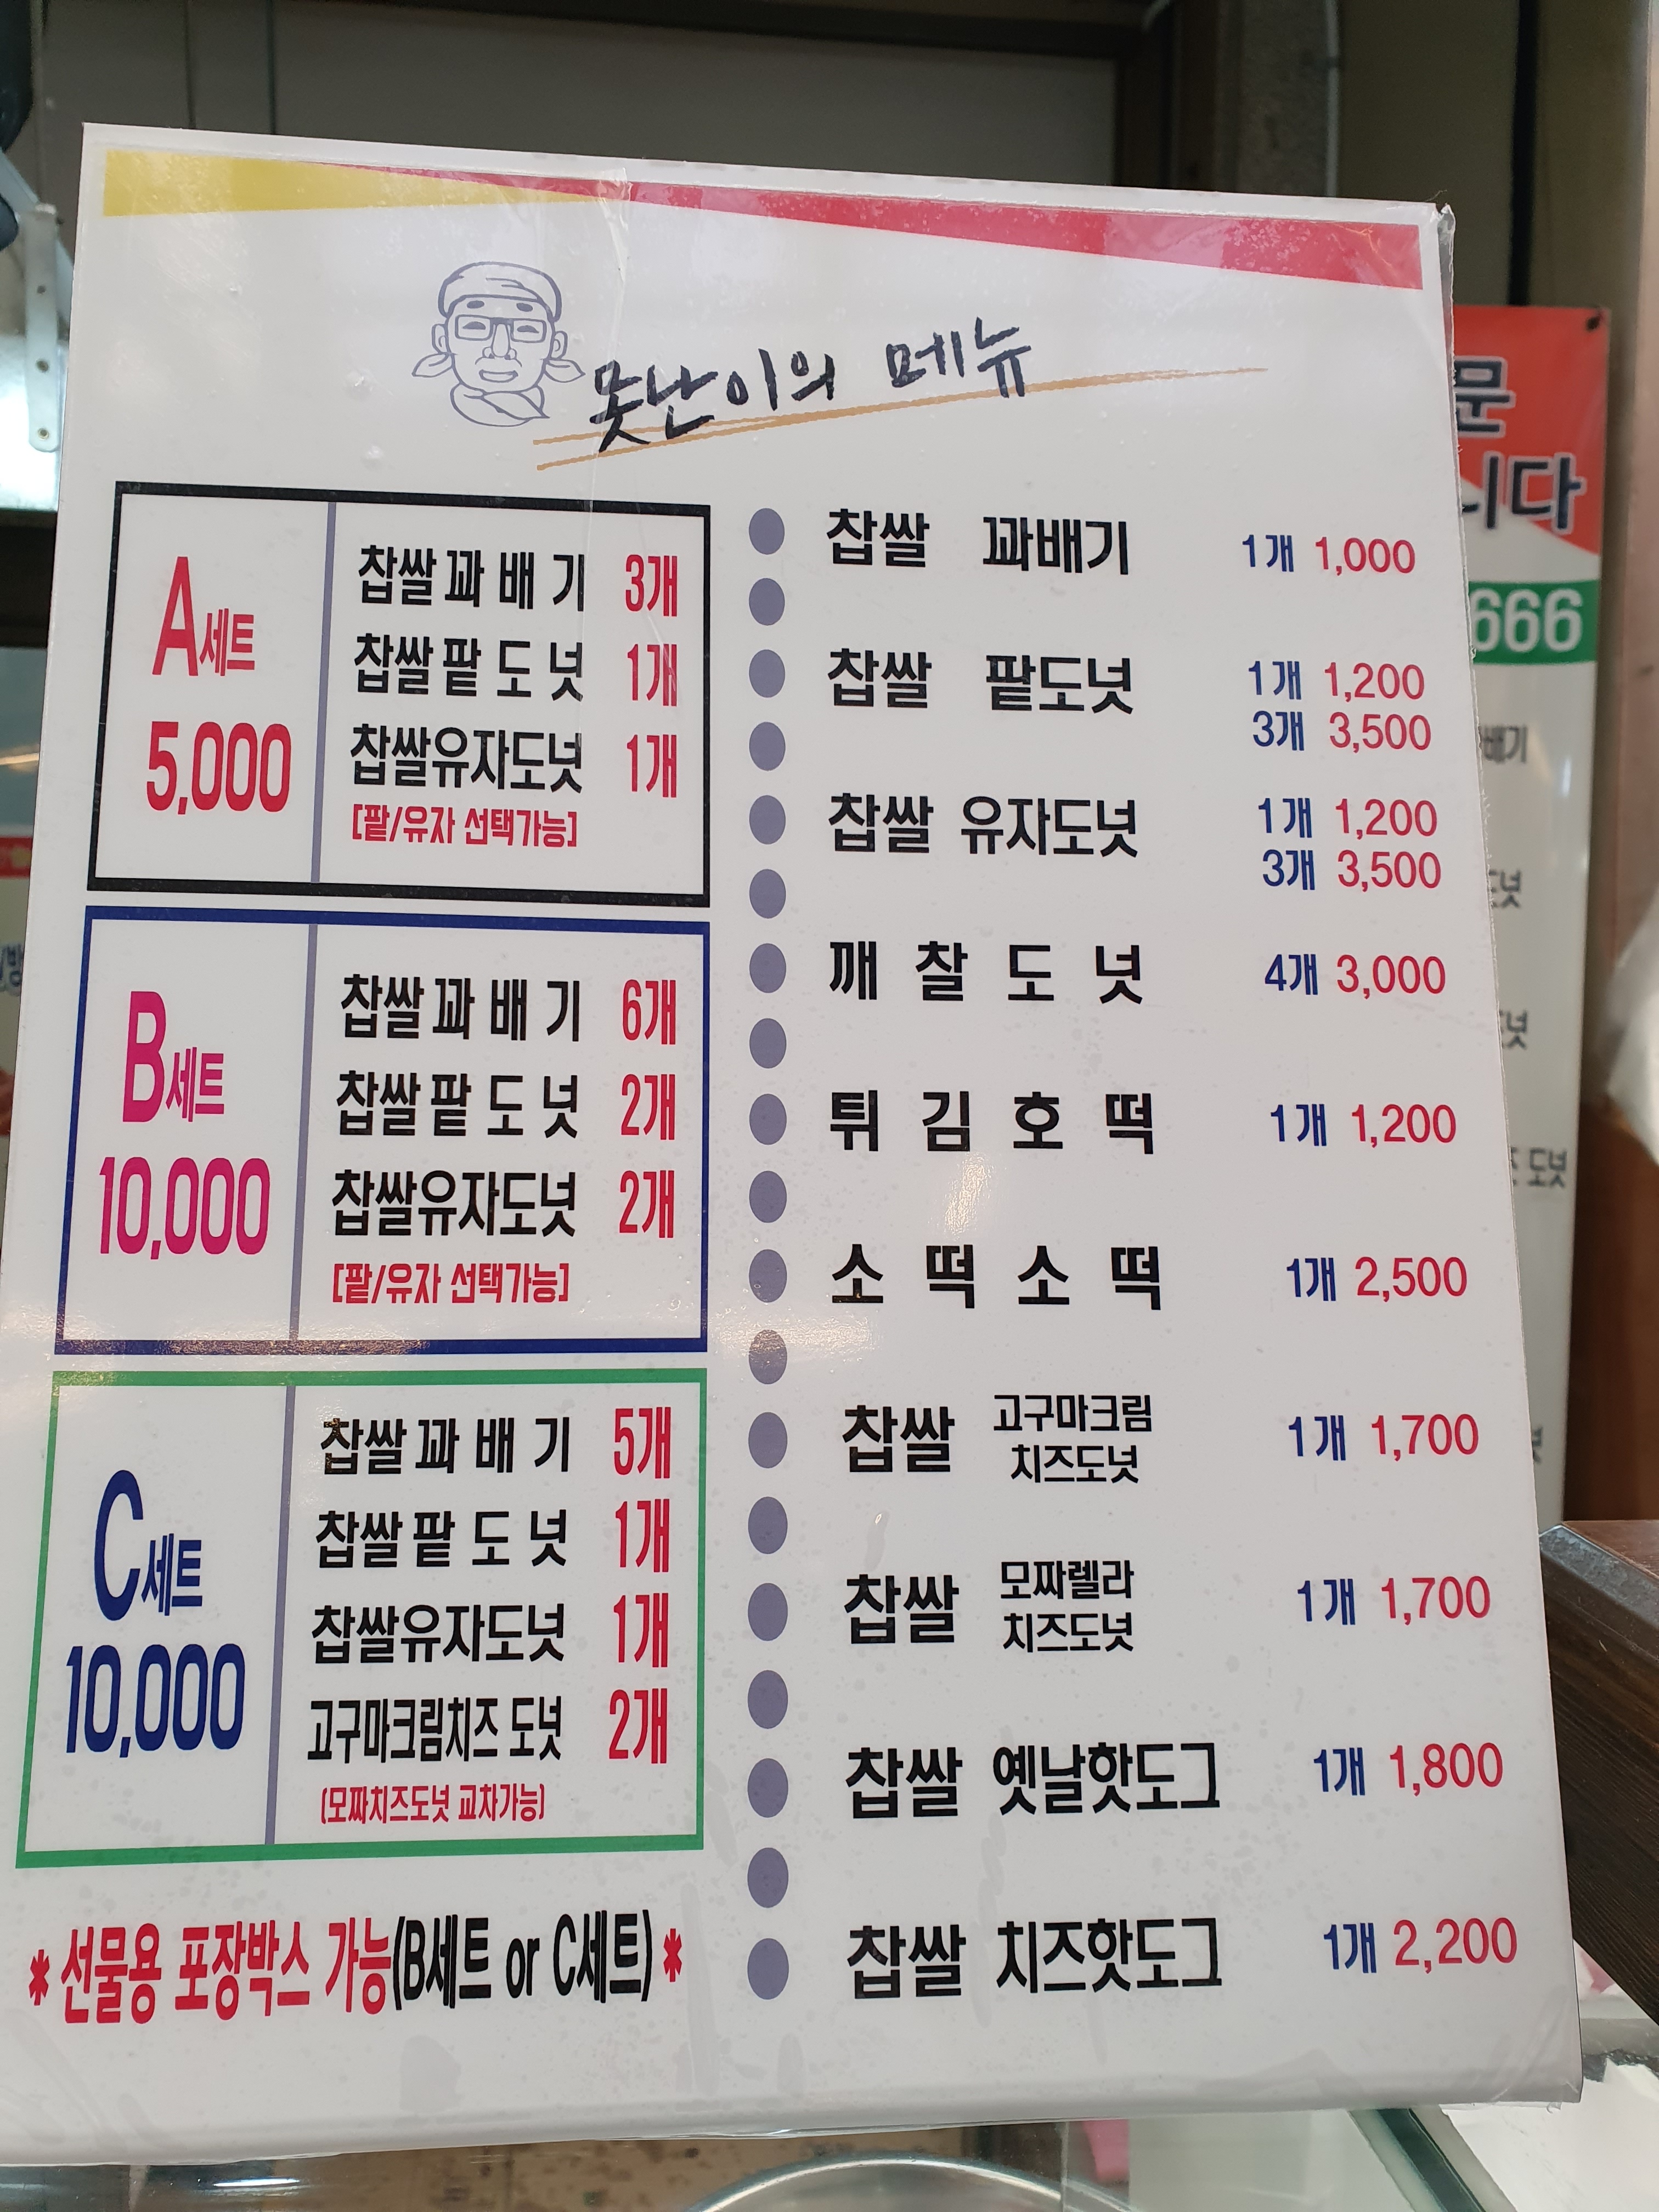 못난이의 메뉴
A세트
5,000
찹쌀꽈배기 3개
찹쌀팥도넛 1개
찹쌀유자도넛 1개
[팥/유자 선택가능]
B세트
10,000
찹쌀꽈배기 6개
찹쌀팥도넛 2개
찹쌀유자도넛 2개
[팥/유자 선택가능]
C세트
10,000
찹쌀꽈배기 5개
찹쌀팥도넛 1개
찹쌀유자도넛 1개
고구마크림치즈 도넛 2개
(모짜치즈도넛 교차가능)
* 선물용 포장박스 가능(B세트 or C세트) *
찹쌀 꽈배기 1개 1,000
찹쌀 팥도넛 1개 1,200
3개 3,500
찹쌀 유자도넛 1개 1,200
3개 3,500
깨찰도넛 4개 3,000
튀김호떡 1개 1,200
소떡소떡 1개 2,500
찹쌀 고구마크림
치즈도넛 1개 1,700
찹쌀 모짜렐라
치즈도넛 1개 1,700
찹쌀 옛날핫도그 1개 1,800
찹쌀 치즈핫도그 1개 2,200
문
니다
666
배기
도넛